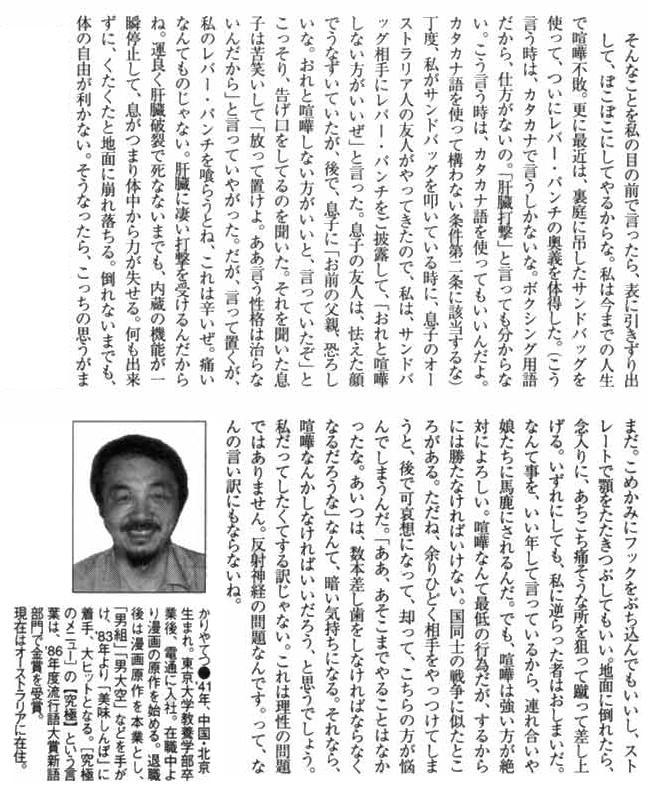 そんなことを私の目の前で言ったら、表に引きずり出
して、ぼこぼこにしてやるからな。私は今までの人生
で喧嘩不敗。更に最近は、裏庭に吊したサンドバッグを
使って、ついにレバー・パンチの奥義を体得した。(こう
言う時は、カタカナで言うしかないな。ボクシング用語
だから、仕方がないの。「肝臓打撃」と言っても分からな
い。こう言う時は、カタカナ語を使ってもいいんだよ。
カタカナ語を使って構わない条件第二条に該当するな)
丁度、私がサンドバッグを叩いている時に、息子のオー
ストラリア人の友人がやってきたので、私は、サンドバ
ッグ相手にレバー・パンチをご披露して、「おれと喧嘩
しない方がいいぜ」と言った。息子の友人は、怯えた顔
でうなずいていたが、後で、息子に「お前の父親、恐ろし
いな。おれと喧嘩しない方がいいと、言っていたぞ」と
こっそり、告げ口をしてるのを聞いた。それを聞いた息
子は苦笑いして「放って置けよ。ああ言う性格は治らな
いんだから」と言っていやがった。だが、言って置くが、
私のレバー・パンチを喰らうとね、これは辛いぜ。痛い
なんてものじゃない。肝臓に凄い打撃を受けるんだから
ね。運良く肝臓破裂で死なないまでも、内蔵の機能が一
瞬停止して、息がつまり体中から力が失せる。何も出来
ずに、くたくたと地面に崩れ落ちる。倒れないまでも、
体の自由が利かない。そうなったら、こっちの思うがま
まだ。こめかみにフックをぶち込んでもいいし、スト
レートで顎をたたきつぶしてもいい。地面に倒れたら、
念入りに、あちこち痛そうな所を狙って蹴って差し上
げる。いずれにしても、私に逆らった者はおしまいだ。
なんて事を、いい年して言っているから、連れ合いや
娘たちに馬鹿にされるんだ。でも、喧嘩は強い方が絶
対によろしい。喧嘩なんて最低の行為だが、するから
には勝たなければいけない。国同士の戦争に似たとこ
ろがある。ただね、余りひどく相手をやっつけてしま
うと、後で可哀想になって、却って、こちらの方が悩
んでしまうんだ。「ああ、あそこまでやることはなか
ったな。あいつは、数本差し歯をしなければならなく
なるだろうな」なんて、暗い気持ちになる。それなら、
喧嘩なんかしなければいいだろう、と思うでしょう。
私だってしたくてする訳じゃない。これは理性の問題
ではありません。反射神経の問題なんです。って、な
んの言い訳にもならないね。
かりやてつ●'41年、中国・北京
生まれ。東京大学教養学部卒
業後、電通に入社。在職中よ
り漫画の原作を始める。退職
後は漫画原作を本業とし、
「男組」「男大空」などを手が
け、'83年より「美味しんぼ」に
着手、大ヒットとなる。「究極
のメニュー」の【究極】という言
葉は、'86年度流行語大賞新語
部門で金賞を受賞。
現在はオーストラリアに在住。